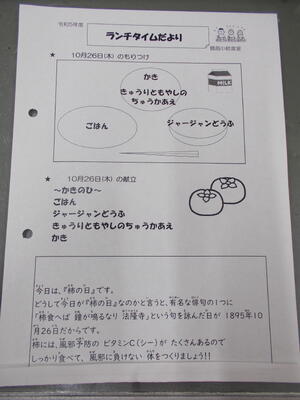 令和5年度
ランチタイムだより
★ 10月26日(木)のもりつけ
かき
きゅうりともやしの
ちゅうかあえ
MILK
ごはん
ジャージャンどうふ
★ 10月26日(木)の献立
～かきのひ～
ごはん
ジャージャンどうふ
きゅうりともやしのちゅうかあえ
かき
今日は、『柿の日』です。
どうして今日が『柿の日』なのかと言うと、有名な俳句の1つに
「柿食へば 鐘が鳴るなり 法隆寺」という句を詠んだ日が 1895年10
月26日だからです。
柿には、風邪予防の ビタミンC(シー)が たくさんあるので
しっかり食べて、風邪に負けない 体をつくりましょう!!